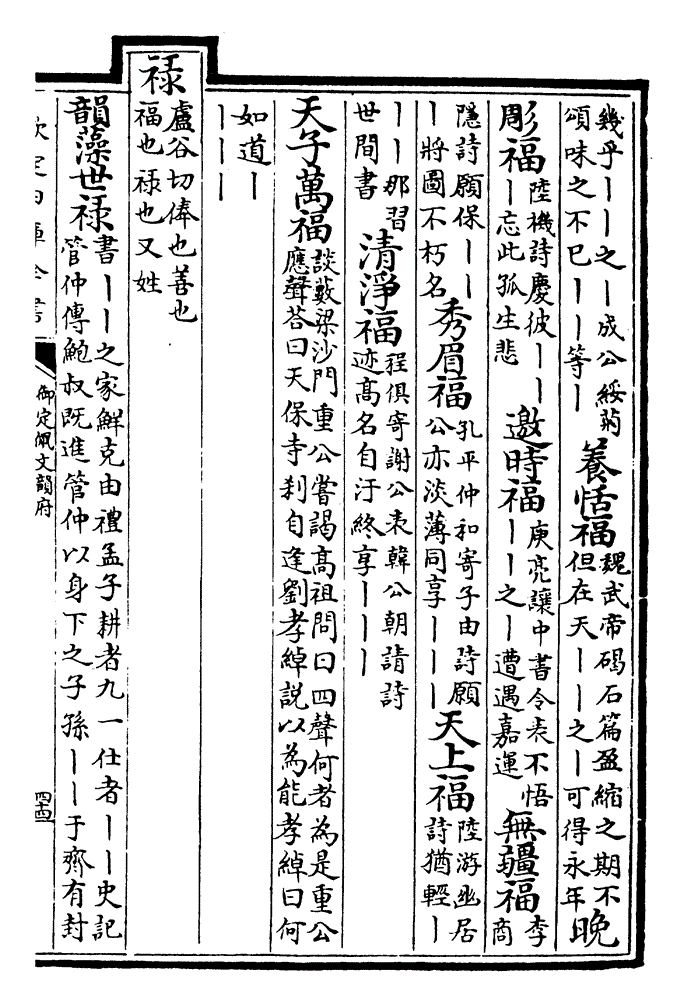 幾乎丨丨之丨成公綏菊
頌味之不已丨丨等丨
養恬福
魏武帝碣石篇盈縮之期不
但在天丨丨之丨可得永年
晚
彫福
陸機詩慶彼丨丨
丨忘此孤生悲
邀時福
庾亮讓中書令表不悟
丨丨之丨遭遇嘉運
無疆福
李
商
隱詩願保丨丨
丨將圖不朽名
秀眉福
孔平仲和寄子由詩願
公亦淡薄同享丨丨丨
天上福
陸游幽居
詩猶輕丨
丨丨那習
世間書
清淨福
程俱寄謝公表韓公朝請詩
迹高名自汙終享丨丨丨
天子萬福
談藪梁沙門重公嘗謁高祖問曰四聲何者為是重公
應聲荅曰天保寺刹自逢劉孝綽説以為能孝綽曰何
如道丨
丨丨丨
禄
盧谷切俸也善也
福也禄也又姓
韻藻世禄
書丨丨之家鮮克由禮孟子耕者九一仕者丨丨史記
管仲傳鮑叔既進管仲以身下之子孫丨丨于齊有封
欽定四庫全書
御定佩文韻府